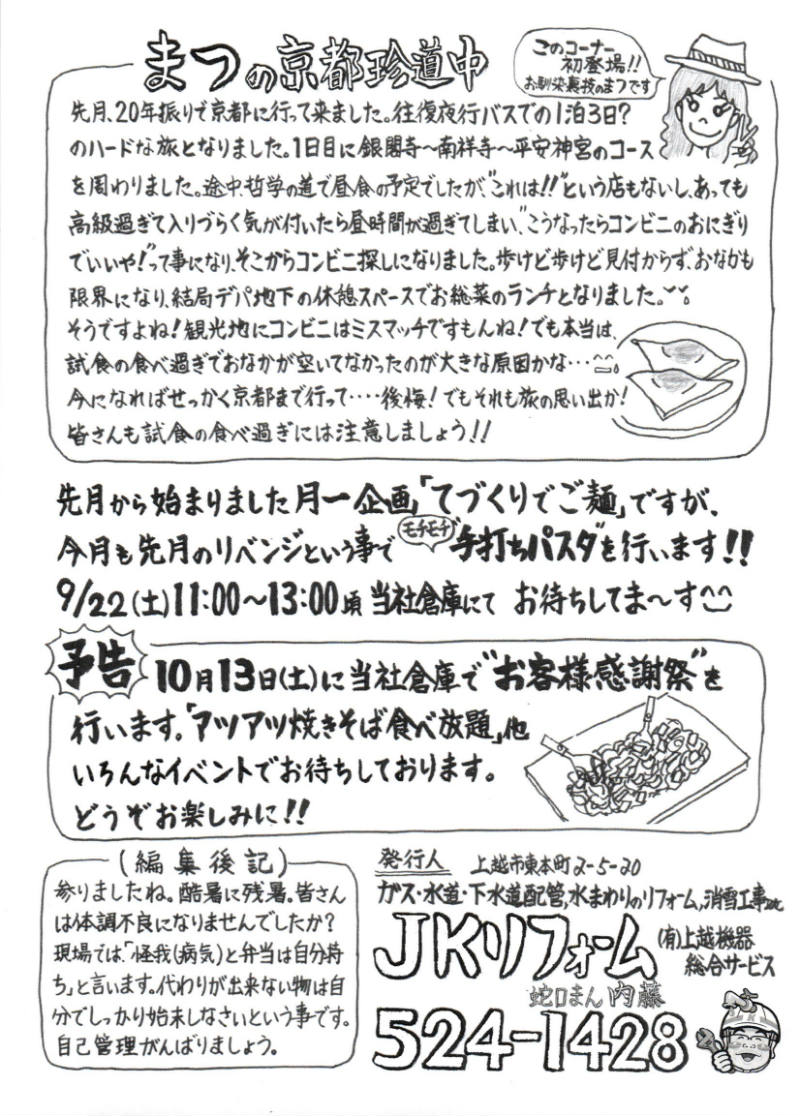 まつの京都珍道中
このコーナー
初登場!!
お馴染裏技のまつです
先月、20年振りで京都に行って来ました。往復夜行バスでの1泊3日?
のハードな旅となりました。1日目に銀閣寺〜南祥寺〜平安神宮のコース
を周わりました。途中、哲学の道で昼食の予定でしたが、"これは!!"という店もないし、あっても
高級過ぎて入りづらく気が付いたら昼時間が過ぎてしまい、"こうなったらコンビニのおにぎり
でいいや!"って事になり、そこからコンビニ探しになりました。歩けど歩けど見付からず、おなかも
限界になり、結局デパ地下の休憩スペースでお総菜のランチとなりました。
そうですよね!観光地にコンビニはミスマッチですもんね!でも本当は、
試食の食べ過ぎでおなかが空いてなかったのが大きな原因かな…
今になればせっかく京都まで行って‥‥後悔!でもそれも旅の思い出か!
皆さんも試食の食べ過ぎには注意しましょう!!
先月から始まりました月一企画「てづくりでご麺」ですが、
今月も先月のリベンジという事で モチモチ "手打ちパスタ"を行います!!
9/22(土)11:00〜13:00頃 当社倉庫にて お待ちしてま〜す^^
予告 10月13日(土)に当社倉庫で"お客様感謝祭"を
行います。「アツアツ焼きそば食べ放題」他
いろんなイベントでお待ちしております。
どうぞお楽しみに!!
(編集後記)
参りましたね。酷暑に残暑。皆さん
は体調不良になりませんでしたか?
現場では、「怪我(病気)と弁当は自分持
ち」と言います。代わりが出来ない物は自
分でしっかり始末しなさいという事です。
自己管理がんばりましょう。
発行人 上越市東本町2-5-20
ガス・水道・下水道配管,水まわりのリフォーム,消雪工事etc
JKリフォーム (有)上越機器
総合サービス
蛇口まん 内藤
524-1428